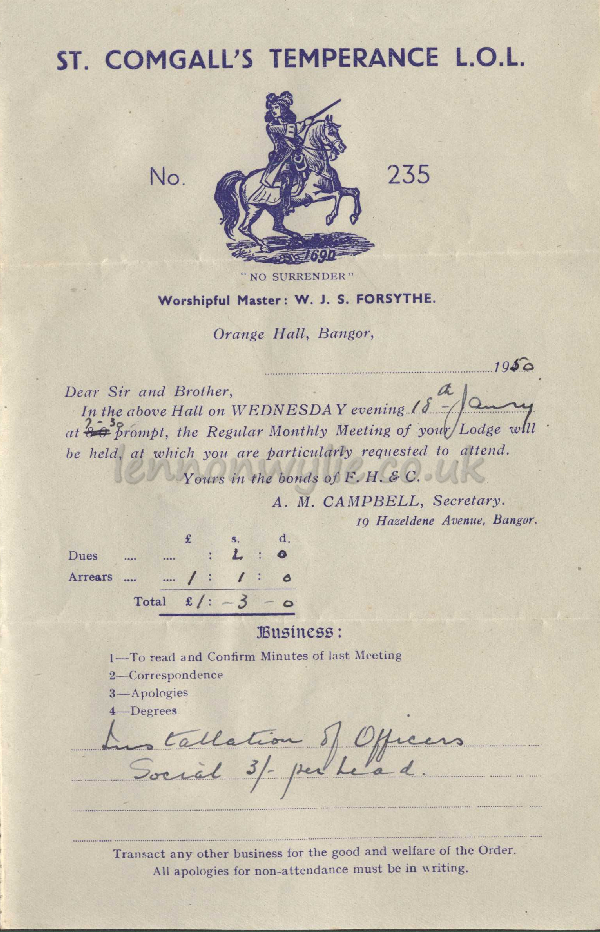 ST. COMGALL'S TEMPERANCE L.O.L.
No. 235
1690
"NO SURRENDER"
Worshipful Master: W. J. S. FORSYTHE.
Orange Hall, Bangor,
1950
Dear Sir and Brother,
In the above Hall on WEDNESDAY evening 18th January
7-30
at prompt, the Regular Monthly Meeting of your Lodge will
be held, at which you are particularly requested to attend.
lennonwylie.co.uk
Yours in the bonds of F. H. & C.
A. M. CAMPBELL, Secretary.
19 Hazeldene Avenue, Bangor.
£ s. d.
Dues .... .... : 2 : 0
Arrears .... .... 1 : 1 : 0
Total £1 : - 3 - 0
Business:
1—To read and Confirm Minutes of last Meeting
2—Correspondence
3—Apologies
4—Degrees
Installation of Officers
Social 3/- per head.
Transact any other business for the good and welfare of the Order.
All apologies for non-attendance must be in writing.